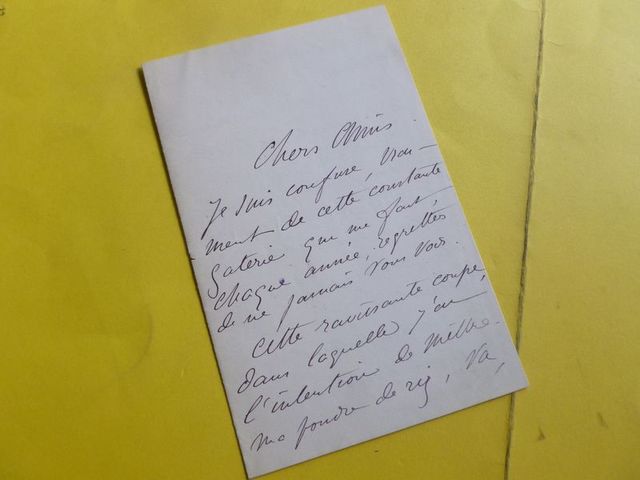 Chers Amis.
Je suis confuse, vrai-
ment de cette constante
gaterie que me fait,
chaque année, regrettes
de ne jamais vous voir.
Cette ravissante coupe,
dans laquelle j'ai
l'intention de mettre
ma poudre de riz, va,